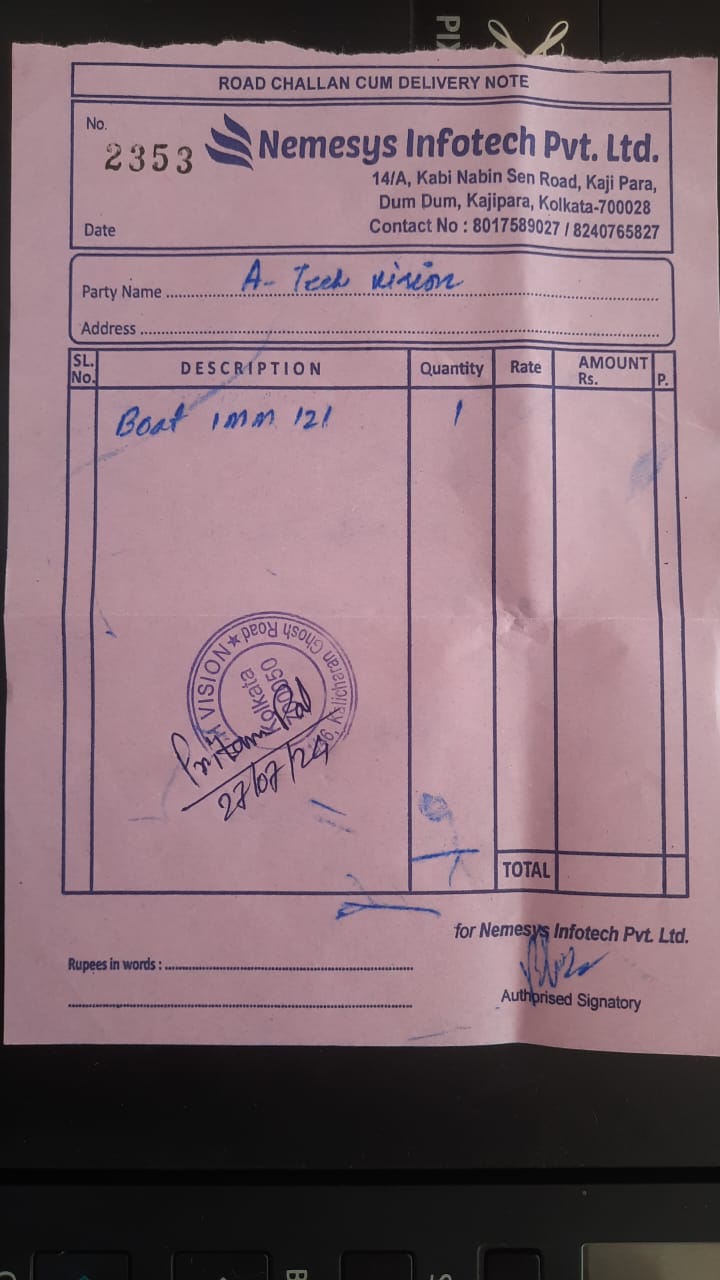 ROAD CHALLAN CUM DELIVERY NOTE
No. 2353
Nemesys Infotech Pvt. Ltd.
14/A, Kabi Nabin Sen Road, Kaji Para,
Dum Dum, Kajipara, Kolkata-700028
Date
Contact No : 8017589027 / 8240765827
Party Name A- Tech Vision
Address
SL. No. DESCRIPTION Quantity Rate AMOUNT Rs. P.
Boat 1mm 121 1
VISION ★ Charan Ghosh Road
Kolkata
Pritam Pal
27/07/24
1
TOTAL
for Nemesys Infotech Pvt. Ltd.
Rupees in words :
Authorised Signatory